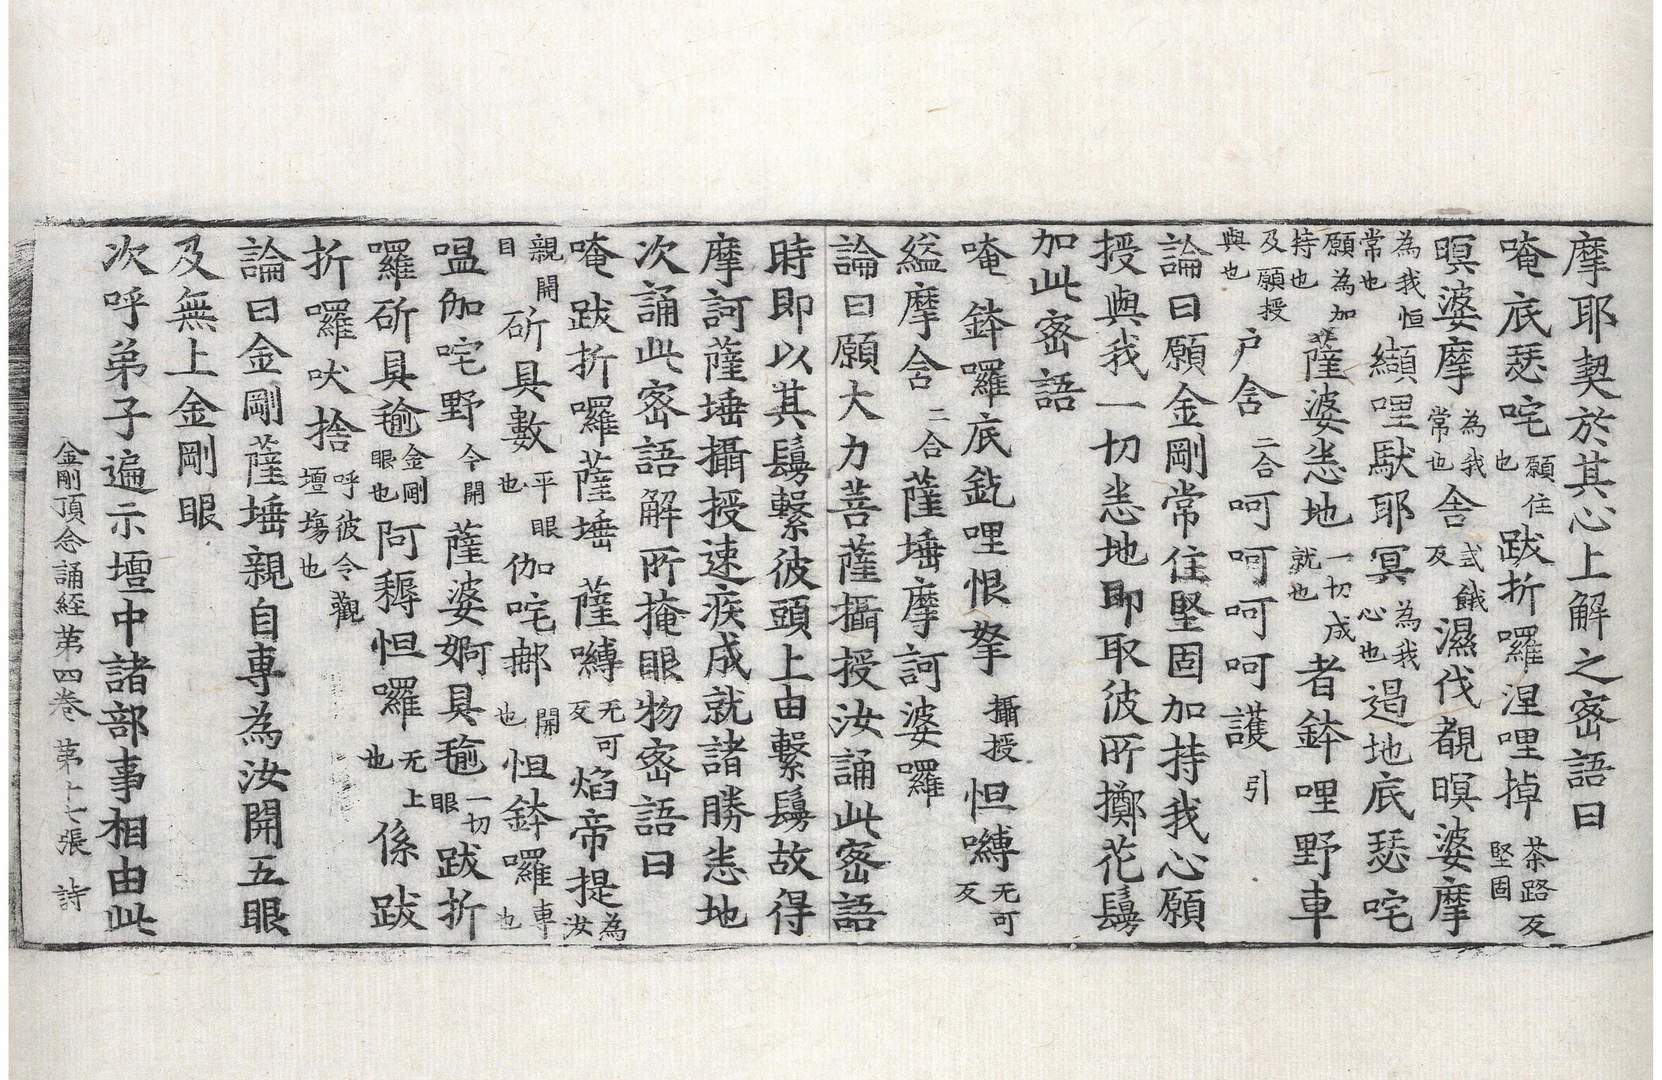 摩耶契於其心上解之密語曰
唵底瑟咤願住也跋折囉涅哩掉茶路反堅固
暝婆摩為我常也舍式餓反濕伐覩暝婆摩
為我恒常也纈哩馱耶冥為我心也遏地底瑟咤
願為加持也薩婆悉地一切成就也者鉢哩野車
及願授與也戶舍二合呵呵呵呵護引
論曰願金剛常住堅固加持我心願
授與我一切悉地即取彼所擲花鬘
加此密語
唵鉢囉底釳哩恨拏攝授怛嚩无可反
縊摩含二合薩埵摩訶婆囉
論曰願大力菩薩攝授汝誦此密語
時即以其鬘繫彼頭上由繫鬘故得
摩訶薩埵攝授速疾成就諸勝悉地
次誦此密語解所掩眼物密語曰
唵跋折囉薩埵薩嚩无可反焰帝提為汝
親開目斫具數平眼也伽咤郝開也怛鉢囉車也
嗢伽咤野令開薩婆婀具䩱一切眼跋折
囉斫具䩱金剛眼也阿耨怛囉无上也係跋
折囉吠捨呼彼令觀壇蕩也
論曰金剛薩埵親自專為汝開五眼
及無上金剛眼
次呼弟子遍示壇中諸部事相由此
金剛頂念誦經第四卷 第十七張 詩